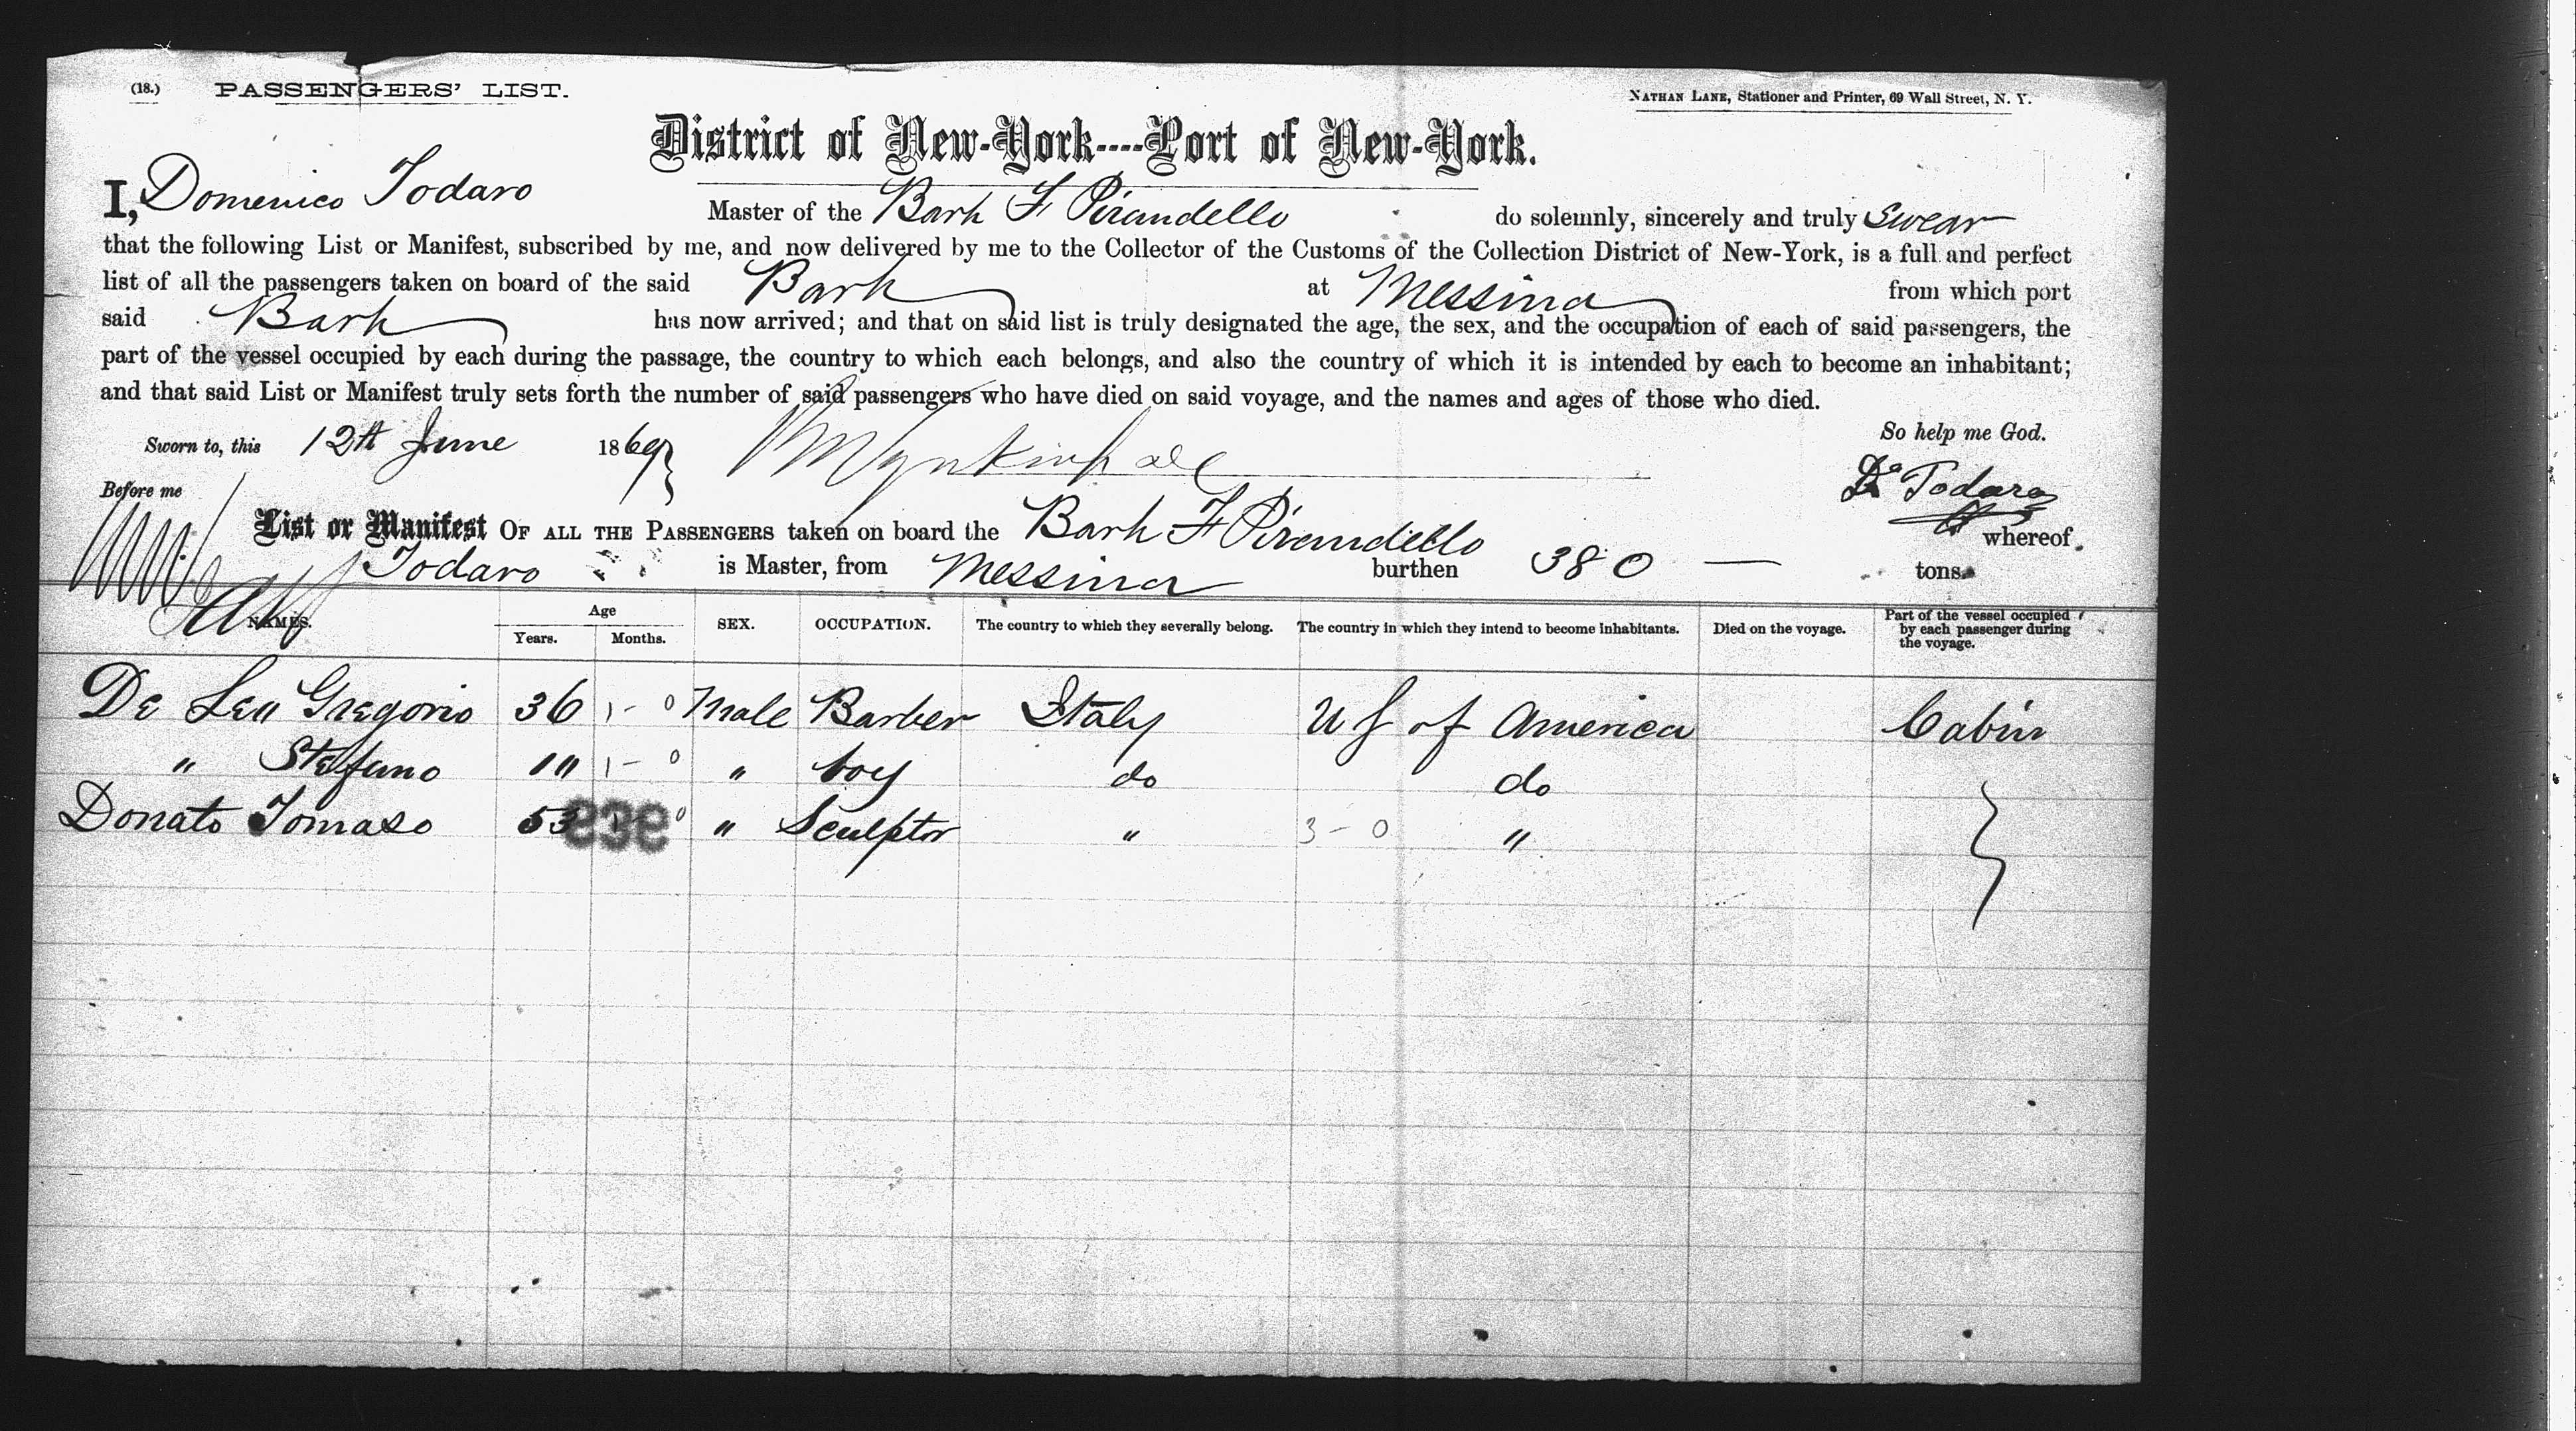 (18.) PASSENGERS' LIST.
NATHAN LANE, Stationer and Printer, 69 Wall Street, N. Y.
District of New-York----Port of New-York.
I, Domenico Todaro Master of the Bark F Pirandello do solemnly, sincerely and truly swear
that the following List or Manifest, subscribed by me, and now delivered by me to the Collector of the Customs of the Collection District of New-York, is a full and perfect
list of all the passengers taken on board of the said Bark at Messina from which port
said Bark has now arrived; and that on said list is truly designated the age, the sex, and the occupation of each of said passengers, the
part of the vessel occupied by each during the passage, the country to which each belongs, and also the country of which it is intended by each to become an inhabitant;
and that said List or Manifest truly sets forth the number of said passengers who have died on said voyage, and the names and ages of those who died.
So help me God.
Sworn to, this 12th June 1869
Before me
Do Todaro
List or Manifest OF ALL THE PASSENGERS taken on board the Bark F Pirandello whereof
Todaro is Master, from Messina burthen 380 — tons.
NAMES. Age Years. Months. SEX. OCCUPATION. The country to which they severally belong. The country in which they intend to become inhabitants. Died on the voyage. Part of the vessel occupied by each passenger during the voyage.
De Leo Gregorio 36 1 - 0 Male Barber Italy U S of America Cabin
" Stefano 1 - 0 " boy do do
Donato Tomaso 53 0 " Sculptor " 3 - 0 "